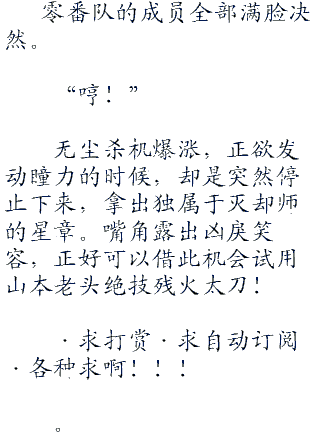 零番队的成员全部满脸决
然。
“哼！”
无尘杀机爆涨，正欲发
动瞳力的时候，却是突然停
止下来，拿出独属于灭却师
的星章。嘴角露出凶戾笑
容，正好可以借此机会试用
山本老头绝技残火太刀！
·求打赏·求自动订阅
·各种求啊！！！
。